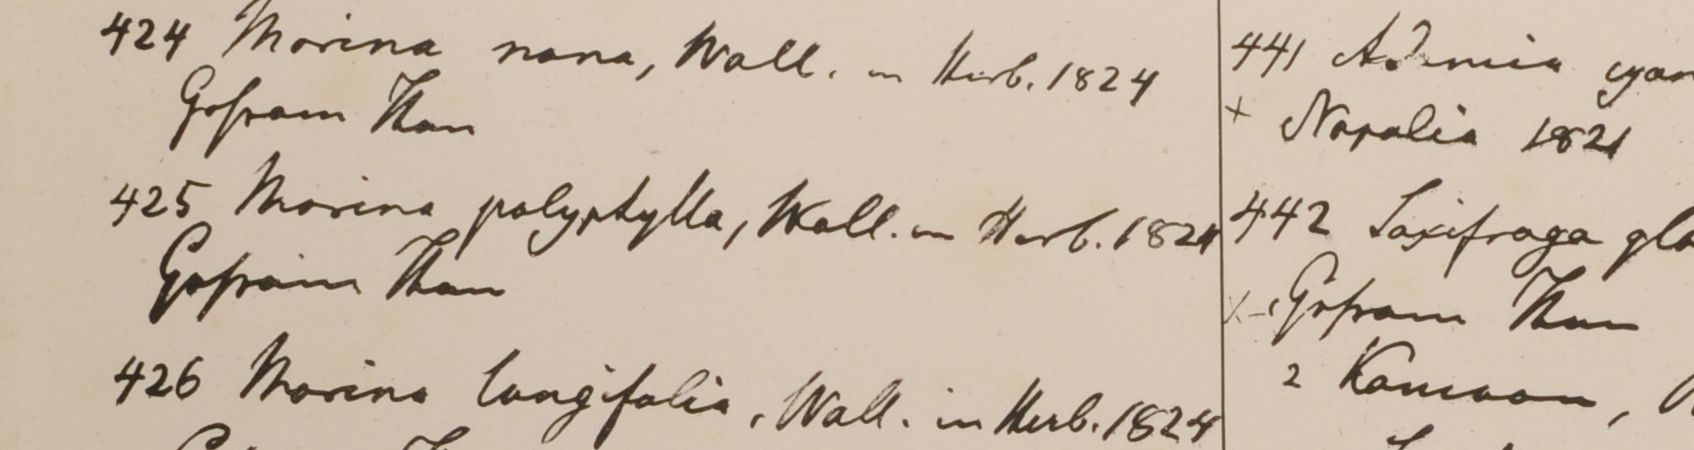 424 Morina nana, Wall. in Herb. 1824
Gofsain Than
425 Morina polyphylla, Wall. in Herb. 1824
Gofsain Than
426 Morina longifolia, Wall. in Herb. 1824
441 Adamia cyan
+ Napalia 1821
442 Saxifraga gla
Gofsain Than
2 Kamaon,